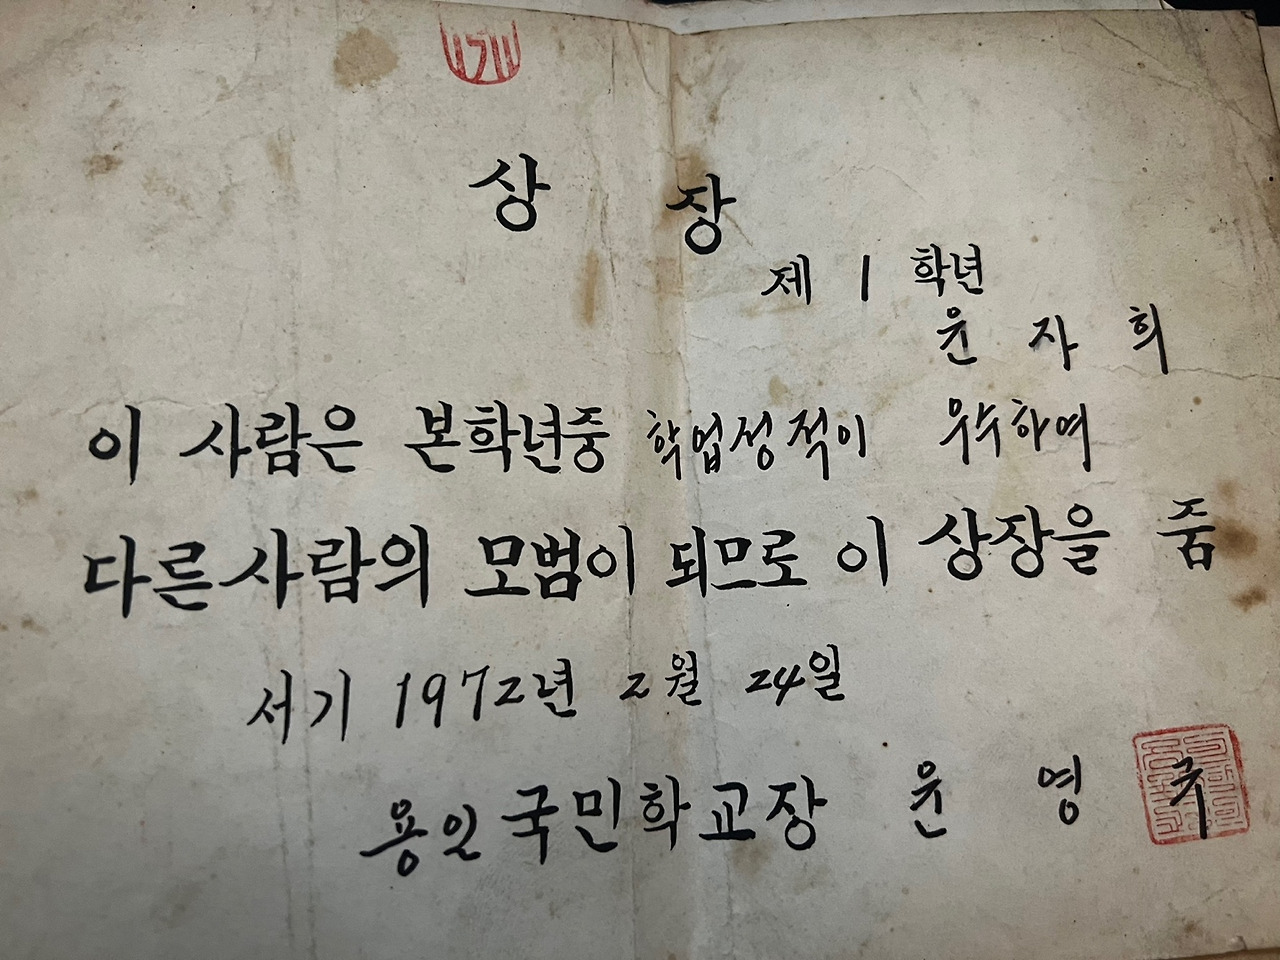 상 장
제 1 학년
윤 자 희
이 사람은 본학년중 학업성적이 우수하여
다른사람의 모범이 되므로 이 상장을 줌
서기 1972년 2월 24일
용인국민학교장 윤 영